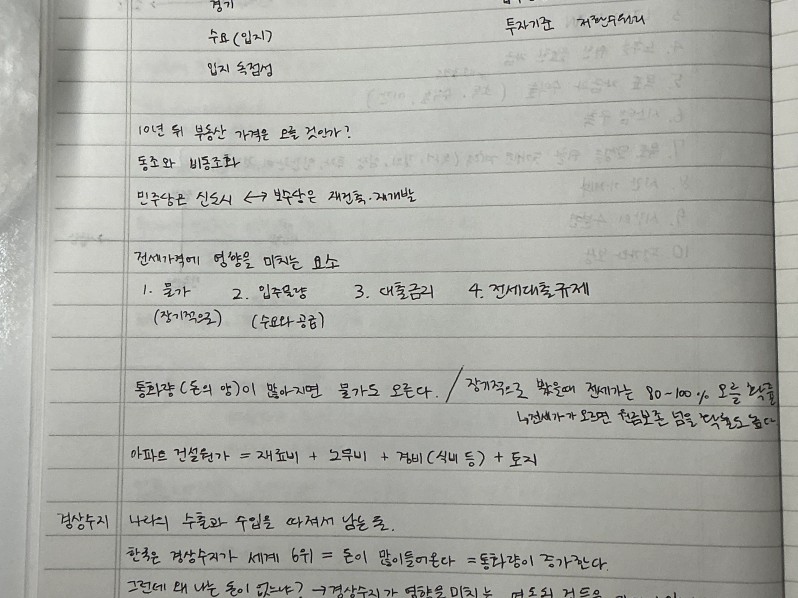 경기
수요 (입지)
투자기준 저환수원리
입지 독점성
10년 뒤 부동산 가격은 오를 것인가?
동조와 비동조화
민주당은 신도시 ↔ 보수당은 재건축. 재개발
전세가격에 영향을 미치는 요소
1. 물가 2. 입주물량 3. 대출금리 4. 전세대출규제
(장기적으로) (수요와 공급)
통화량 (돈의 양)이 많아지면 물가도 오른다. / 장기적으로 봤을때 전세가는 80~100% 오를 확률
↳전세가가 오르면 원금보존 넘을 확률도 높다
아파트 건설원가 = 재료비 + 노무비 + 경비 (식비 등) + 토지
경상수지 나라의 수출과 수입을 따져서 남는 돈.
한국은 경상수지가 세계 6위 = 돈이 많이들어온다 = 통화량이 증가한다.
그런데 왜 나는 돈이 없느냐? → 경상수지가 영향을 미치는